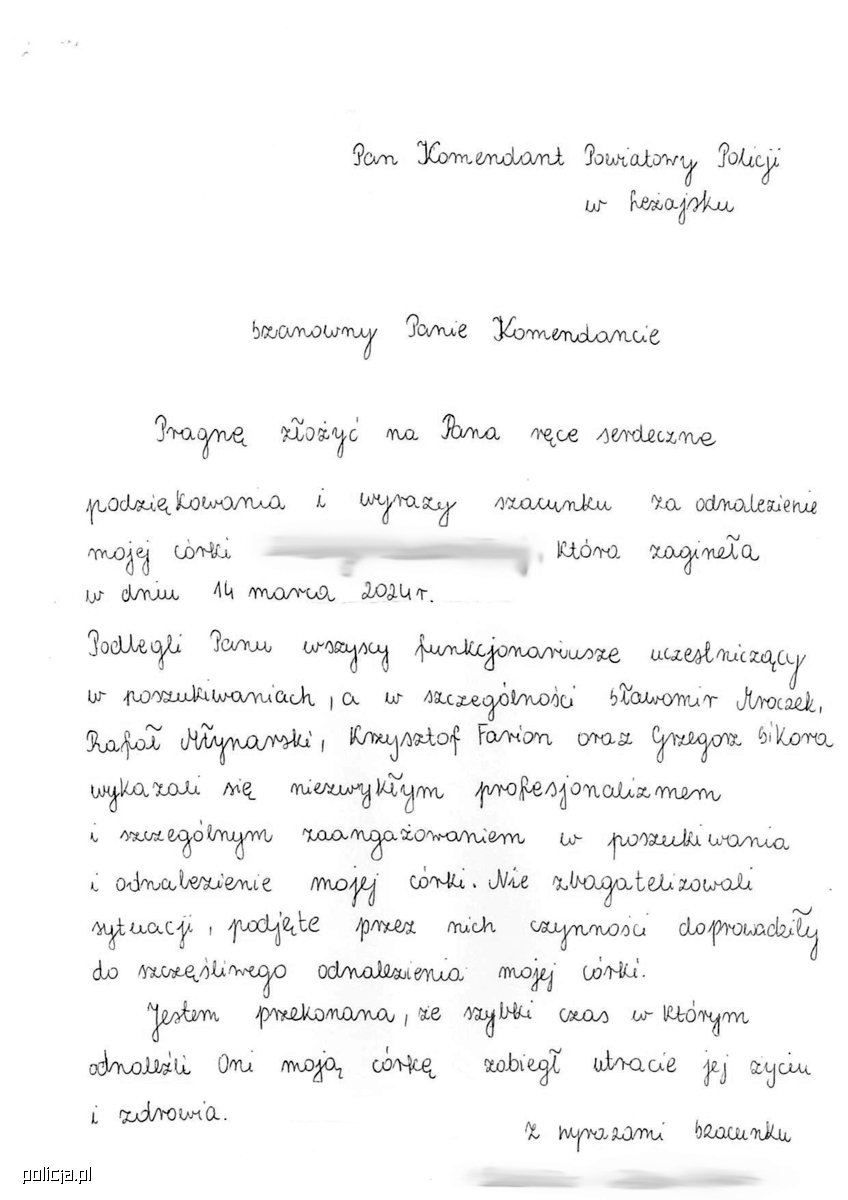 Pan Komendant Powiatowy Policji
w Leżajsku
Szanowny Panie Komendancie
Pragnę złożyć na Pana ręce serdeczne
podziękowania i wyrazy szacunku za odnalezienie
mojej córki , która zaginęła
w dniu 14 marca 2024 r.
Podlegli Panu wszyscy funkcjonariusze uczestniczący
w poszukiwaniach, a w szczególności Sławomir Mroczek,
Rafał Młynarski, Krzysztof Farion oraz Grzegorz Sikora
wykazali się niezwykłym profesjonalizmem
i szczególnym zaangażowaniem w poszukiwania
i odnalezienie mojej córki. Nie zbagatelizowali
sytuacji, podjęte przez nich czynności doprowadziły
do szczęśliwego odnalezienia mojej córki.
Jestem przekonana, że szybki czas w którym
odnaleźli Oni moją córkę zabiegł utracie jej życiu
i zdrowia.
Z wyrazami Szacunku
policja.pl